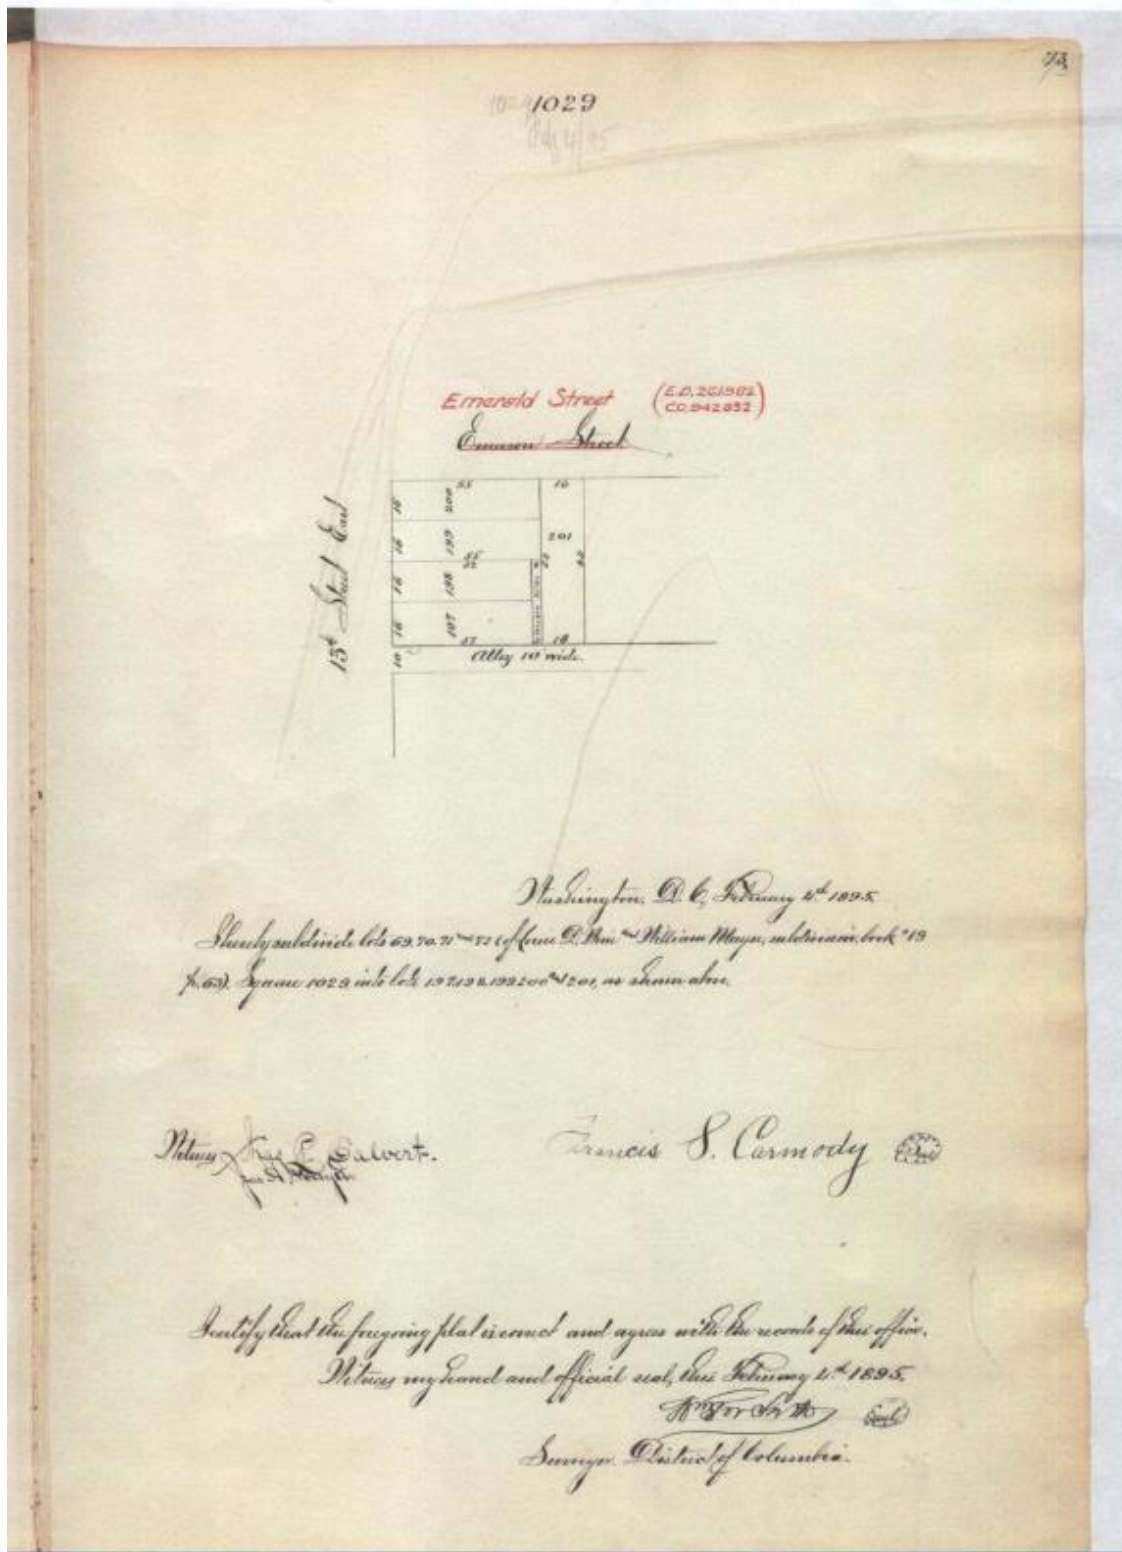 73
1029
1029
Emerald Street (E.D. 261982
C.O. 942832)
Emerson Street
55 10
16 200
16 199 201
16 198
16 197
10
Alley 10 wide.
13th Street East
Washington, D.C. February 4th 1895.
I hereby subdivide lots 69.70.71 and 72 (of D. and William Mayse, subdivision, book 19
p. 63). Square 1029 into lots 197.198.199.200 and 201, as shown above.
Witness Chas. C. Calvert.
Francis S. Carmody Seal
I certify that the foregoing plat is correct and agrees with the records of this office.
Witness my hand and official seal, this February 4th 1895.
Wm Forsyth Seal
Surveyor. District of Columbia.